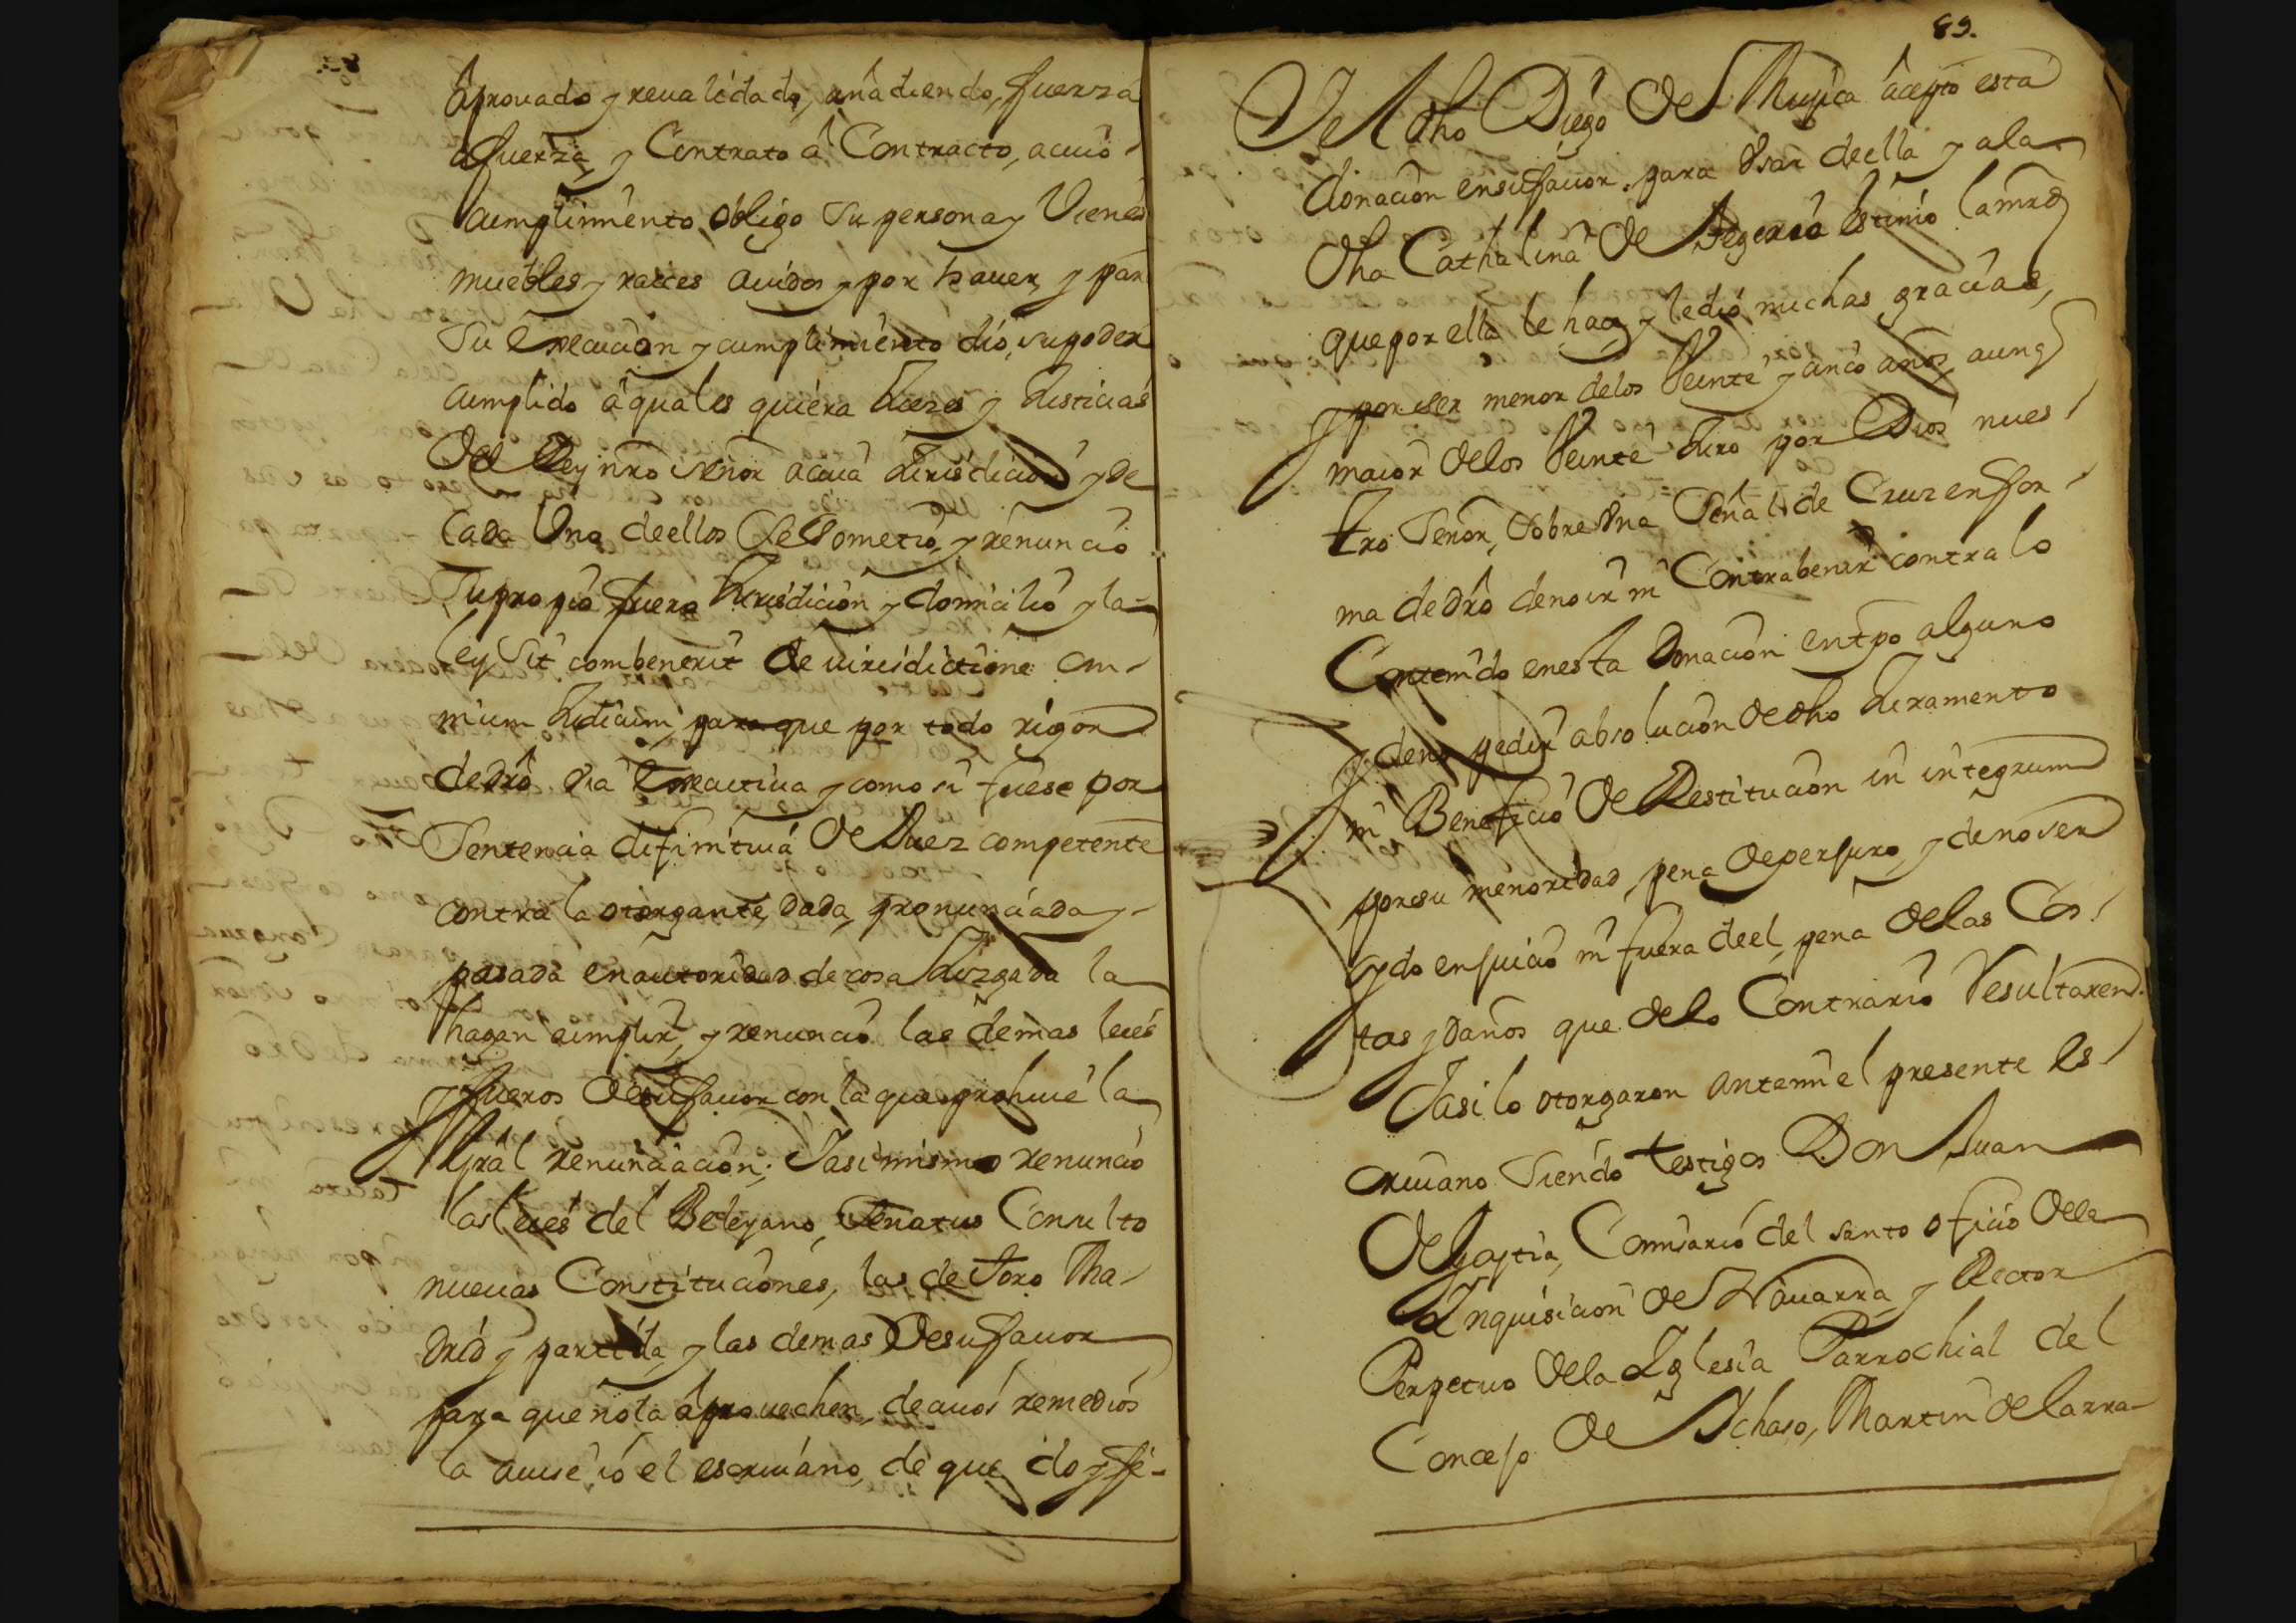 aprouado y reualidado, añadiendo, fuerza
a fuerza, y Contrato â Contracto, acuio
cumplimiento obligo Su persona y Vienes
muebles y raices auidos y por hauer, y para
Su execucion y cumplimiento dio, su poder
cumplido â quales quiera Juezes y Justicias
Del Rey nro señor a cuia Jurisdicion y de
Cada Uno de ellos Se Sometio, y renuncio
Su propio fuero Jurisdicion y domicilio y la
ley Sit combenerit de iurisdictione om-
nium Judicum, para que por todo rigor
de drô via executiua y como si fuese por
Sentencia difinitiua De Juez competente
contra la otorgante, dada, pronunciada y
pasada en autoridad de cosa Juzgada la
hagan cumplir, y renuncio las demas leies
y fueros De su fauor con la que prohiue la
Gràl renunciacion; Iasimismo renuncio
las leies del Beleyano, Senatus Consulto
nueuas Constituciones, las de Toro Ma-
drid y partida, y las demas De su fauor
para que no la aprouechen, de cuios remedios
la auise io el escriuano, de que doy fe-
89.
Y el dho Diego De Mugica âcepto esta
donacion en su fauor, para Usar de ella y a la
dha Cathalina De Segerca Estimo la mrd
que por ella le haçe y le dio muchas gracias,
y por ser menor de los Veinte y cinco años, aunq
maior de los Veinte Juro por Dios nues-
tro Señor, Sobre Una Señal de Cruz en for-
ma de drô de no ir ni Contrabenir contra lo
Contenido en esta Donacion en tpo alguno
y de no pedir absolucion de dho Juramento
ni Beneficio De Restitucion in integrum
por su menoridad, pena De perjuro, y de no ser
oydo en juicio ni fuera de el, pena De las Cos-
tas y Daños que de lo Contrario Resultaren.
Iasi lo otorgaron ante mi el presente Es-
criuano Siendo testigos Don Juan
De Goytia, Comisario del santo oficio De la
Inquisicion De Nauarra, y Rector
Perpetuo De la Iglesia Parrochial del
Concejo De Ichaso, Martin de Larra-